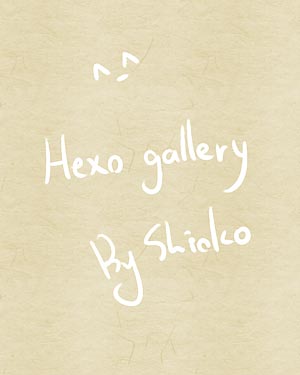 ^_^
Hexo gallery
By Shieko